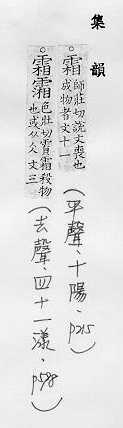 集韻
霜 師莊切說文喪也
成物者文十一
(平聲、十陽、p215)
霜 色壯切霣霜殺物
也或从仌文三
(去聲、四十一漾、p598)